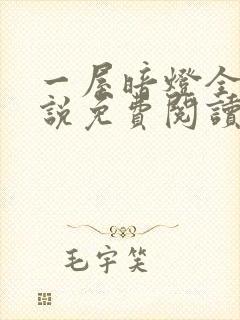 一屋暗燈全
説免費閱讀
毛宇笑